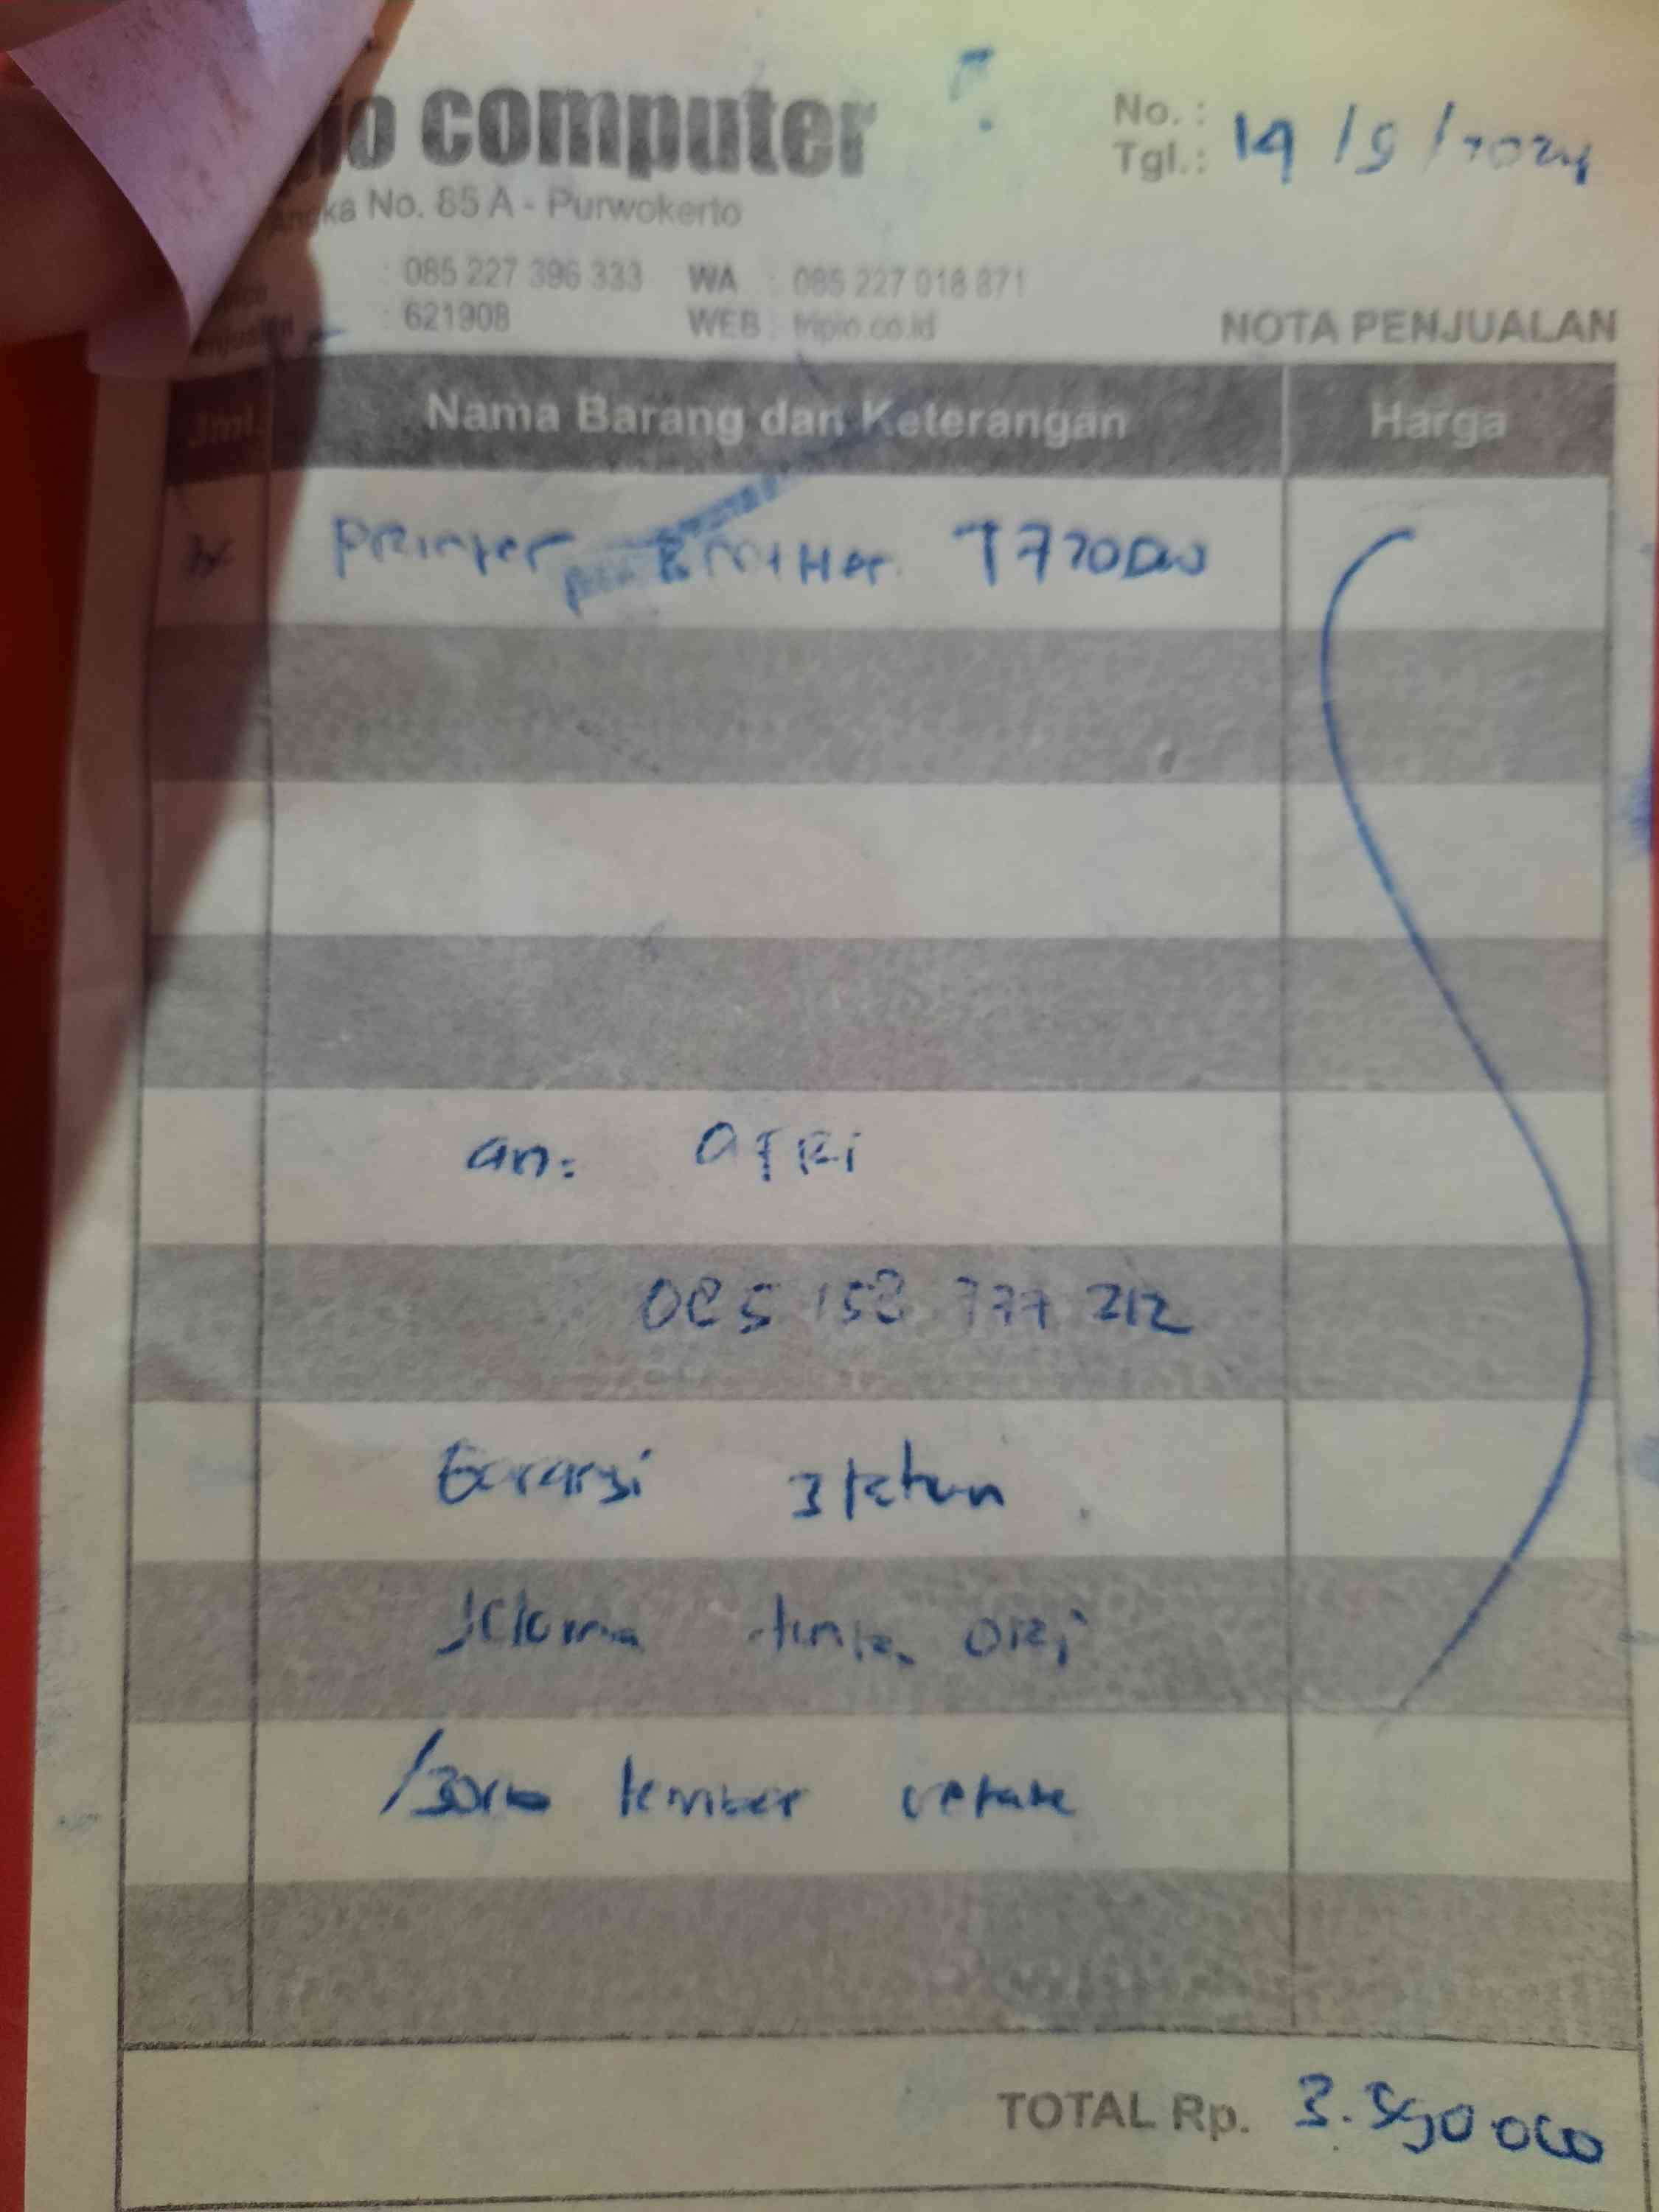 computer
No. :
Tgl.: 14 / 9 / 2024
No. 85 A - Purwokerto
: 085 227 396 333 WA : 085 227 018 871
: 621908 WEB : tripio.co.id
NOTA PENJUALAN
Jml. Nama Barang dan Keterangan Harga
Printer Brother T720DW
an: Afri
085 158 777 212
Garansi 3 tahun
selama tinta ori
/30000 lembar cetak
TOTAL Rp. 3.590000